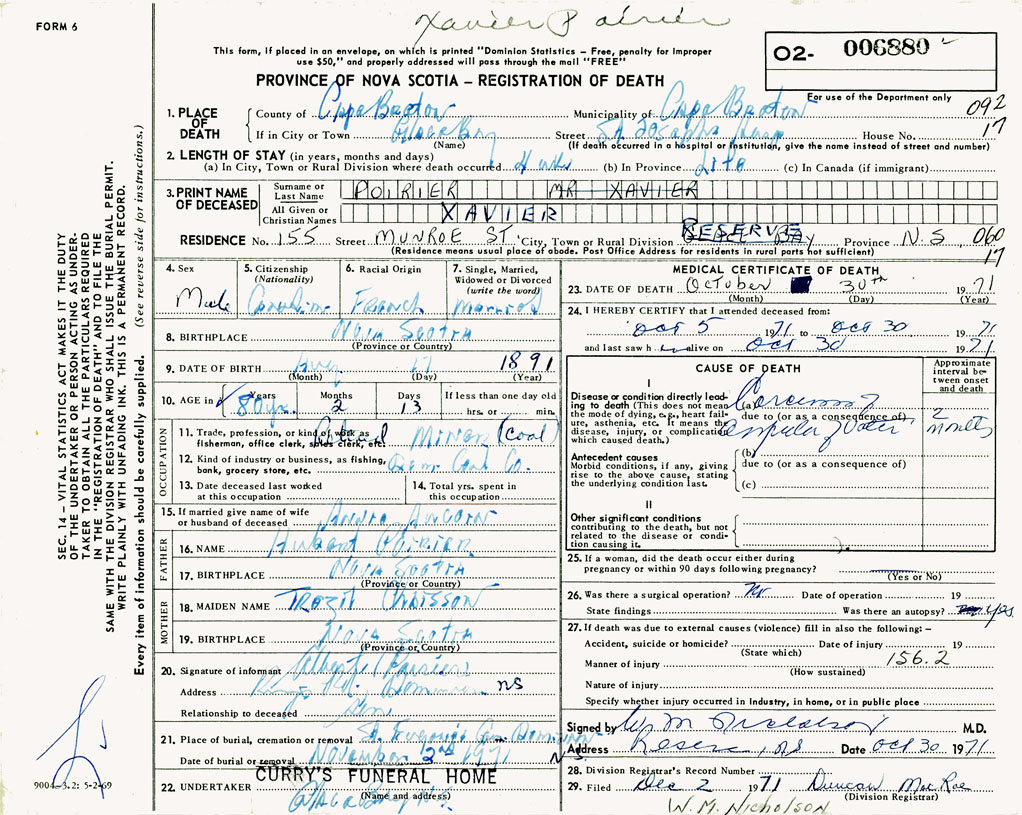 Xavier Poirier
FORM 6
This form, if placed in an envelope, on which is printed "Dominion Statistics – Free, penalty for improper
use $50," and properly addressed will pass through the mail "FREE"
O2- 006880
PROVINCE OF NOVA SCOTIA – REGISTRATION OF DEATH
For use of the Department only
092
17
1. PLACE OF DEATH
County of Cape Breton Municipality of Cape Breton
If in City or Town Glace Bay Street St. Josephs Hosp House No.
(Name) (If death occurred in a hospital or institution, give the name instead of street and number)
2. LENGTH OF STAY (in years, months and days)
(a) In City, Town or Rural Division where death occurred 4 wks (b) In Province Life (c) In Canada (if immigrant)
3. PRINT NAME OF DECEASED
Surname or Last Name POIRIER MR XAVIER
All Given or Christian Names XAVIER
RESIDENCE No. 155 Street MUNROE ST. City, Town or Rural Division RESERVE Province N.S. 060
(Residence means usual place of abode. Post Office Address for residents in rural parts not sufficient) 17
4. Sex Male
5. Citizenship (Nationality) Canadian
6. Racial Origin French
7. Single, Married, Widowed or Divorced (write the word) Married
8. BIRTHPLACE Nova Scotia
(Province or Country)
9. DATE OF BIRTH Aug 17 1891
(Month) (Day) (Year)
10. AGE in Years 80 yrs. Months 2 Days 13 If less than one day old hrs. or min.
OCCUPATION
11. Trade, profession, or kind of work as fisherman, office clerk, sales clerk, etc. Miner (Coal)
12. Kind of industry or business, as fishing, bank, grocery store, etc. Dom. Coal Co.
13. Date deceased last worked at this occupation
14. Total yrs. spent in this occupation
15. If married give name of wife or husband of deceased
FATHER
16. NAME Hubert Poirier
17. BIRTHPLACE Nova Scotia
(Province or Country)
MOTHER
18. MAIDEN NAME Chiasson
19. BIRTHPLACE Nova Scotia
(Province or Country)
20. Signature of informant Albert Poirier
Address Kings Rd., Dominion NS
Relationship to deceased Son
21. Place of burial, cremation or removal St. Cem Dominion
Date of burial or removal November 2nd 1971 N.S.
22. UNDERTAKER CURRY'S FUNERAL HOME
(Name and address)
Glace Bay N.S.
MEDICAL CERTIFICATE OF DEATH
23. DATE OF DEATH October 30th 1971
(Month) (Day) (Year)
24. I HEREBY CERTIFY that I attended deceased from:
Oct 5 1971 to Oct 30 1971
and last saw h im alive on Oct 30 1971
CAUSE OF DEATH
Approximate interval between onset and death
I
Disease or condition directly leading to death (This does not mean the mode of dying, e.g., heart failure, asthenia, etc. It means the disease, injury, or complication which caused death.)
(a) Carcinoma of
due to (or as a consequence of)
Ampulla of Vater 2 months
Antecedent causes
Morbid conditions, if any, giving rise to the above cause, stating the underlying condition last.
(b)
due to (or as a consequence of)
(c)
II
Other significant conditions
contributing to the death, but not related to the disease or condition causing it.
25. If a woman, did the death occur either during
pregnancy or within 90 days following pregnancy?
(Yes or No)
26. Was there a surgical operation? No Date of operation 19
State findings Was there an autopsy? yes
27. If death was due to external causes (violence) fill in also the following: –
Accident, suicide or homicide? Date of injury 19
(State which) 156.2
Manner of injury
(How sustained)
Nature of injury
Specify whether injury occurred in Industry, in home, or in public place
Signed by W M Nicholson M.D.
Address Reserve, NS Date Oct 30 1971
28. Division Registrar's Record Number
29. Filed Dec 2 1971 Duncan MacRae
(Division Registrar)
W.M. NICHOLSON
SEC. 14 – VITAL STATISTICS ACT MAKES IT THE DUTY
OF THE UNDERTAKER OR PERSON ACTING AS UNDER-
TAKER TO OBTAIN ALL THE PARTICULARS REQUIRED
IN THE "REGISTRATION OF DEATH" AND TO FILE THE
SAME WITH THE DIVISION REGISTRAR WHO SHALL ISSUE THE BURIAL PERMIT.
WRITE PLAINLY WITH UNFADING INK. THIS IS A PERMANENT RECORD.
Every item of information should be carefully supplied. (See reverse side for instructions.)
9004-3.2: 5-2-69